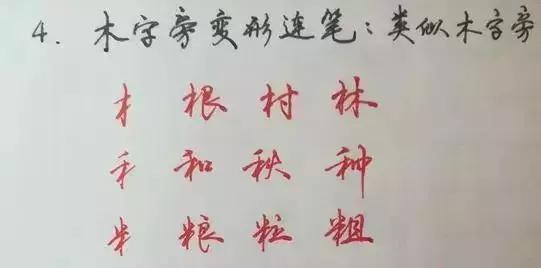 4. 木字旁变形连笔：类似木字旁
木 根 村 林
禾 和 秋 种
米 粮 粒 粗